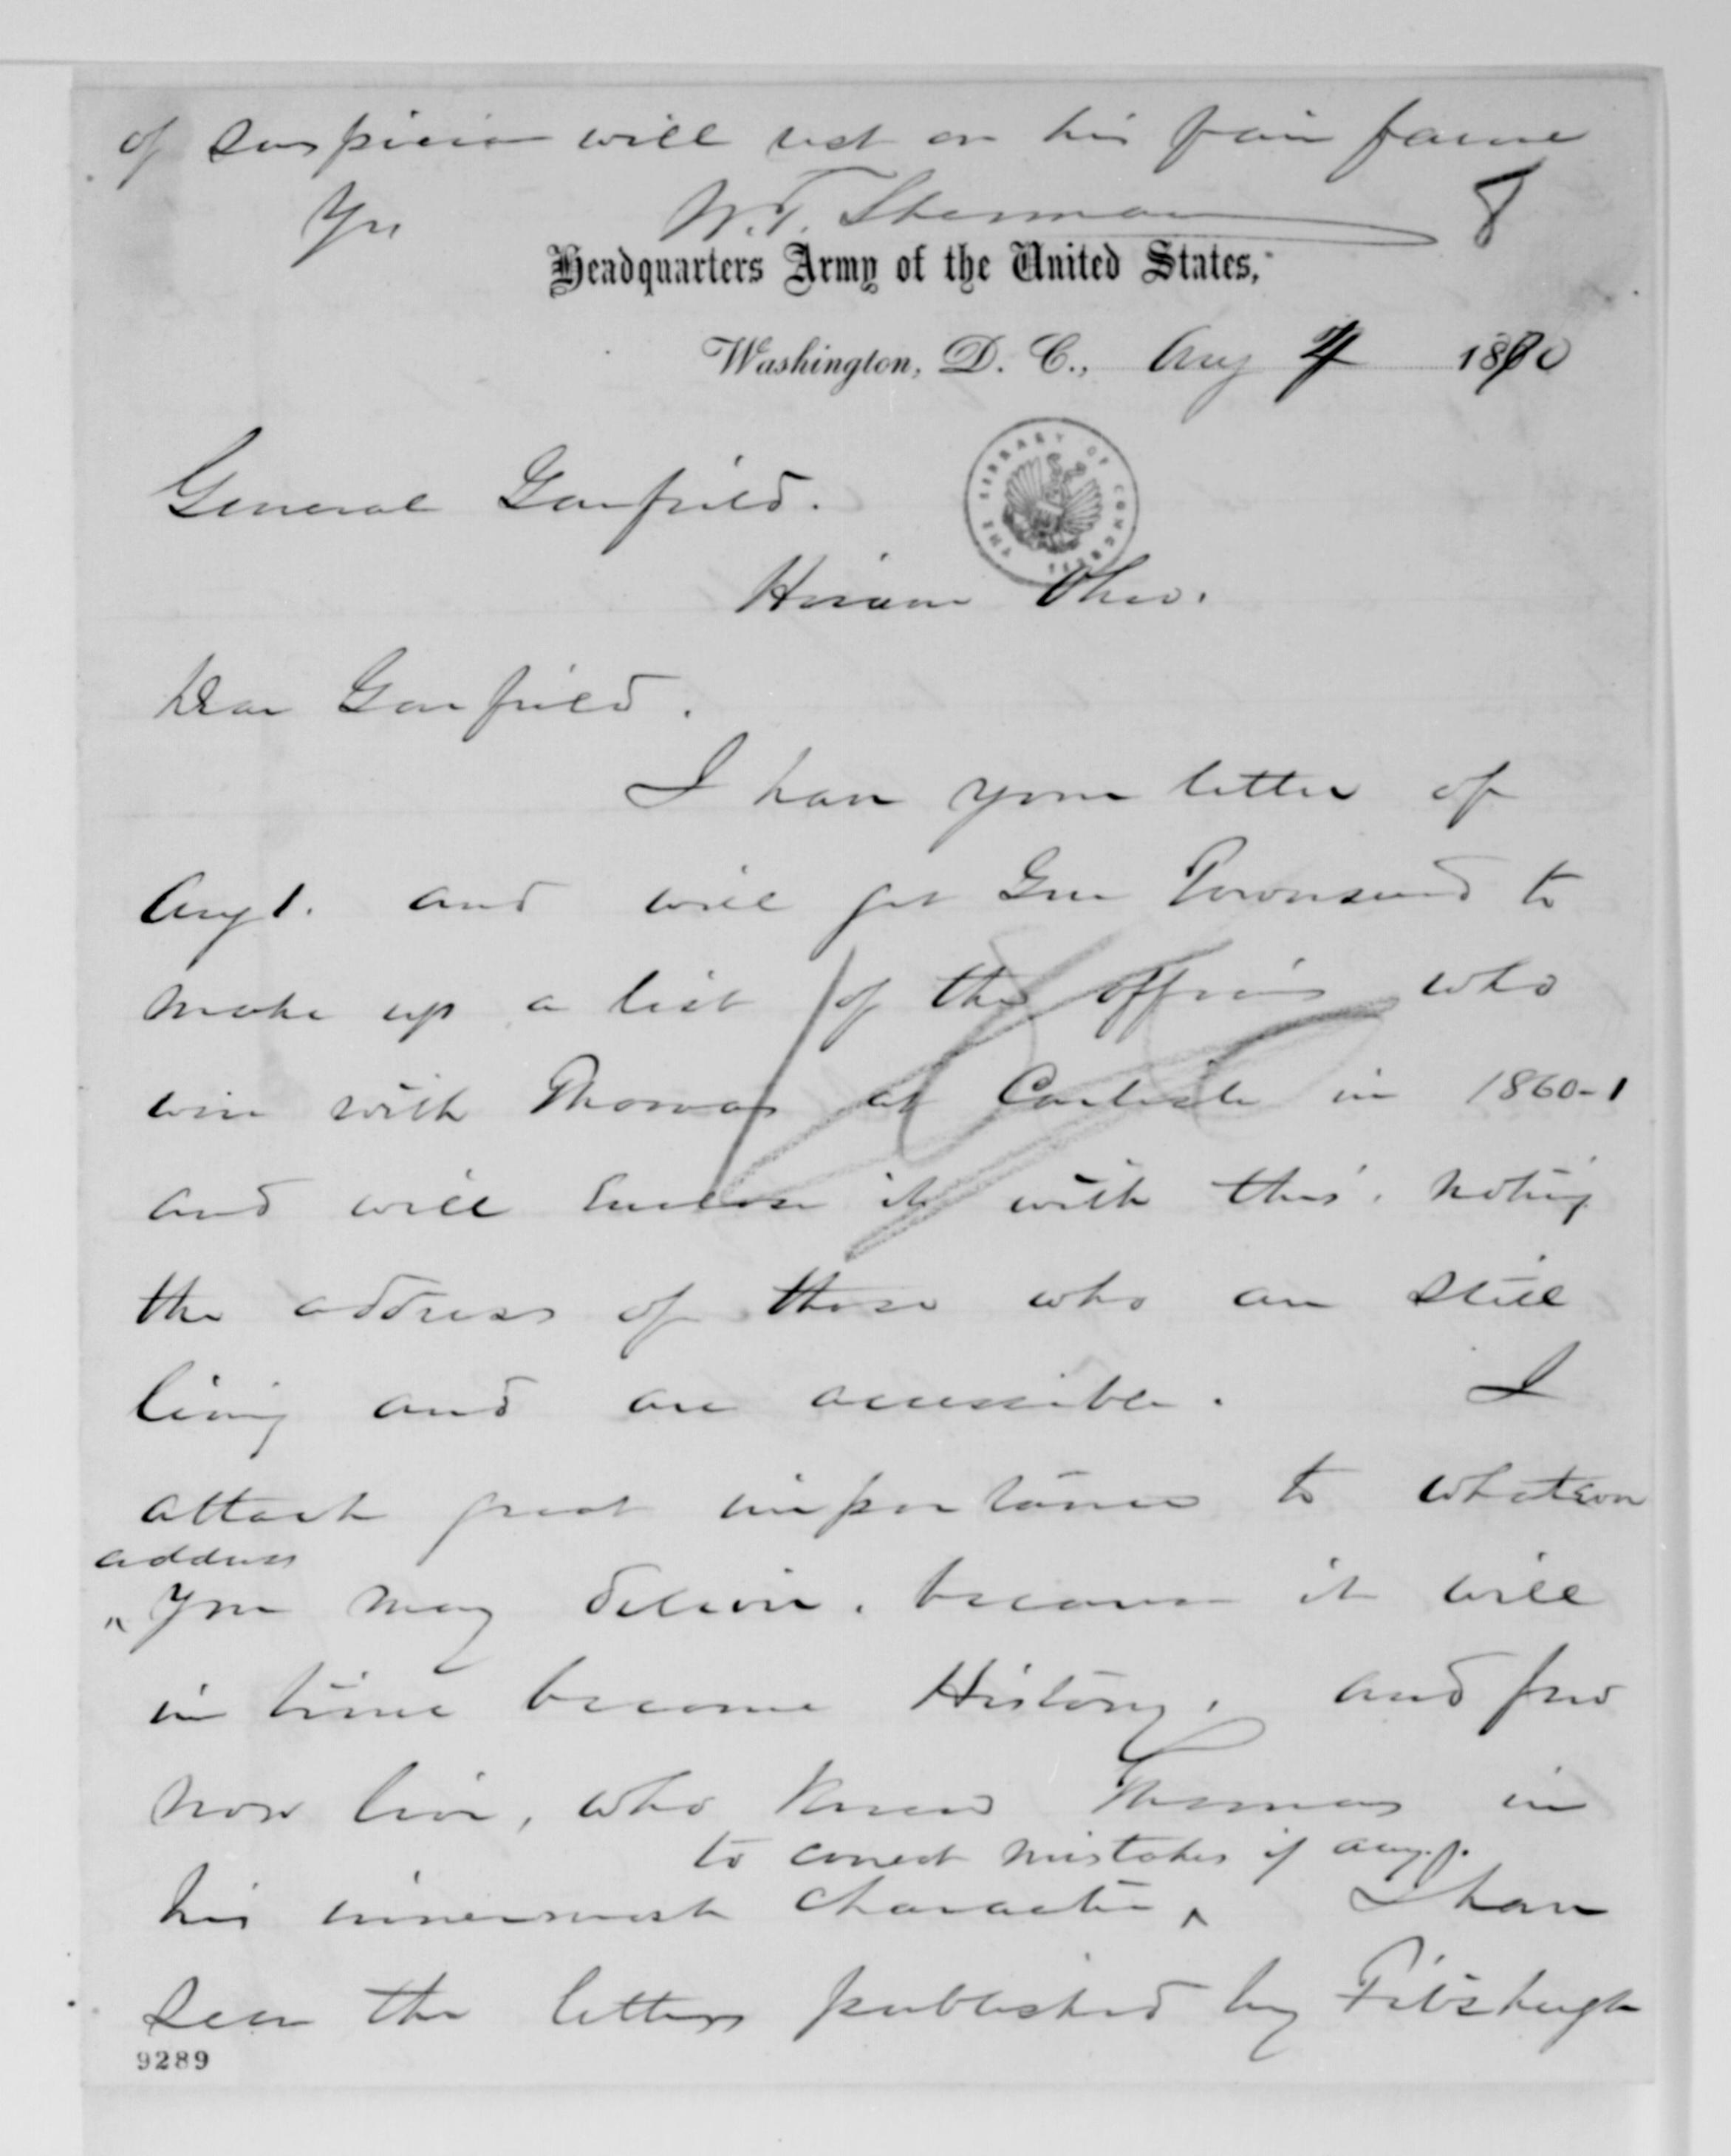 of suspicion will rest on his fair fame
Yrs W.T. Sherman 8
Headquarters Army of the United States,
Washington, D. C., Aug 4 1870
THE LIBRARY OF CONGRESS
General Garfield.
Hiram Ohio.
Dear Garfield.
I have your letter of
Aug 1. and will get Gen Townsend to
make up a list of the officers who
were with Thomas at Carlisle in 1860-1
and will enclose it with this, noting
the address of those who are still
living and are accessible. I
attach great importance to whatever
address
^ you may deliver, because it will
in time become History, and few
now live, who knew Thomas in
to correct mistakes if any.
his innermost character ^ I have
seen the letters published by Fitzhugh
9289